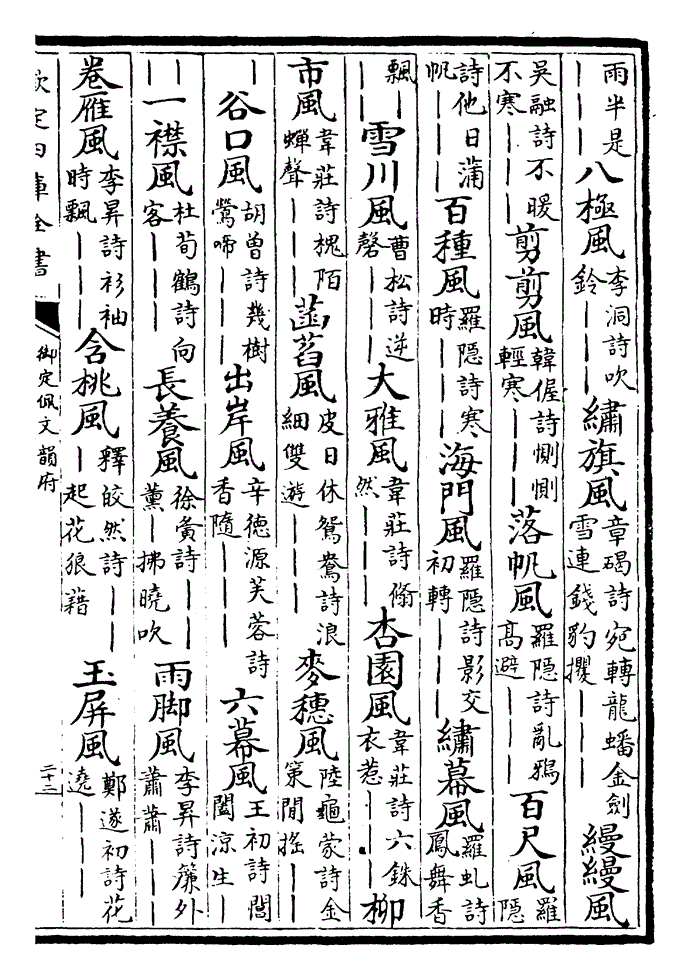 雨半是｜｜｜八極風李洞詩吹鈴｜｜｜繡旗風章碣詩宛轉龍蟠金劍雪連錢豹攫｜｜｜縵縵風
吳融詩不暖不寒｜｜｜剪剪風韓偓詩惻惻輕寒｜｜｜落帆風羅隱詩亂鴉高避｜｜｜百尺風羅隱
詩他日蒲帆｜｜｜百種風羅隱詩寒時｜｜｜海門風羅隱詩影交初轉｜｜｜繡幕風羅虬詩鳳舞香
飄｜｜｜雪川風曹松詩逆磬｜｜｜大雅風韋莊詩翛然｜｜｜杏園風韋莊詩六銖衣惹｜｜｜柳
市風韋莊詩槐陌蟬聲｜｜｜菡萏風皮日休鴛鴦詩浪細雙遊｜｜｜麥穗風陸龜蒙詩金策閒搖｜｜｜
｜谷口風胡曾詩幾樹鶯啼｜｜｜出岸風辛德源芙蓉詩香隨｜｜｜六幕風王初詩閶闔涼生｜
｜｜一襟風杜荀鶴詩向客｜｜｜長養風徐夤詩｜｜｜薰｜拂曉吹雨脚風李昇詩簾外蕭蕭｜｜｜
卷雁風李昇詩衫袖時飄｜｜｜含桃風釋皎然詩｜｜｜｜起花狼藉玉屏風鄭遂初詩花遶｜｜｜
欽定四庫全書
御定佩文韻府